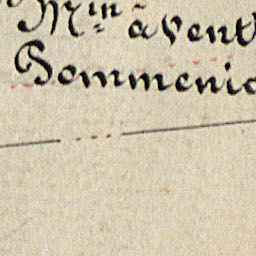 Mⁱⁿ à vent
Bommenic